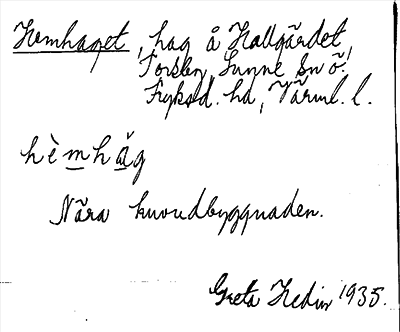 Hemhaget, hag å Hallgärdet,
Torsby, Sunne sn ö.
Fryksd. hd, Värml. l.
hèmhag
Nära huvudbyggnaden.
Greta Hedin 1935.